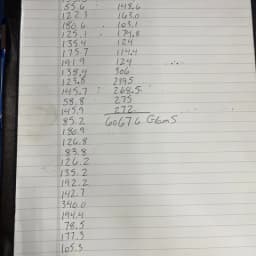 55.6 148.6
122.3 163.0
180.6 103.1
125.1 179.8
135.4 124
175.7 114.4
191.9 124
138.4 306
123.8 219.5
145.7 268.5
58.8 275
145.9 272
85.2 6067.6 GGmS
180.9
126.8
83.8
126.2
135.2
192.2
142.7
340.0
194.4
78.5
177.3
105.5